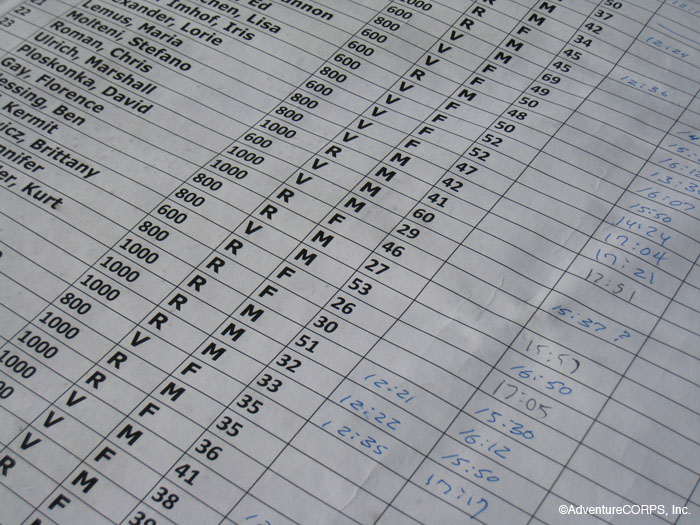 Ed
Lisa
Imhof, Iris
Lorie
Lemus, Maria
Molteni, Stefano
Roman, Chris
Ulrich, Marshall
Ploskonka, David
Gay, Florence
Ben
Kermit
Brittany
Kurt
22
23
600
800
600
600
600
800
600
800
800
1000
600
1000
1000
800
800
600
800
1000
1000
1000
800
1000
1000
1000
R
V
V
V
R
V
V
V
V
V
R
V
V
R
V
R
R
R
R
R
V
R
R
V
V
R
F
M
M
F
M
F
F
F
F
M
M
M
M
F
M
M
F
F
M
F
M
M
F
M
F
M
F
M
F
50
37
42
34
45
45
69
49
50
48
50
52
52
47
42
41
60
29
46
27
53
26
30
51
32
33
35
35
36
41
38
39
12:24
12:36
12:21
12:22
12:35
16:07
15:50
14:24
17:04
17:21
17:51
15:37?
15:57
16:50
17:05
15:30
16:12
15:50
17:17
©AdventureCORPS, Inc.